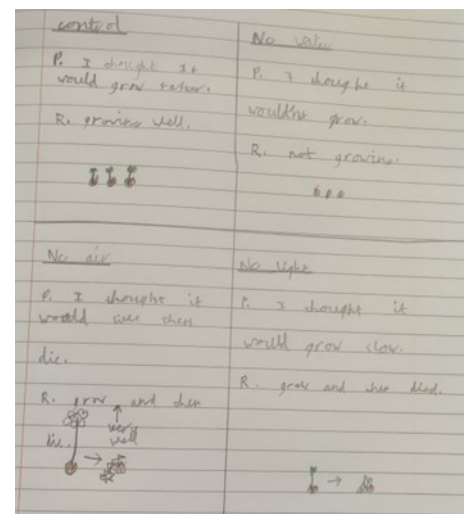 control
P. I thought it
would grow faster.
R. growing well.
No water
P. I thought it
wouldn't grow.
R. not growing.
No air
P. I thought it
would live then
die.
R. grow and then
very
die. well
No light
P. I thought it
would grow slow.
R. grow and then died.